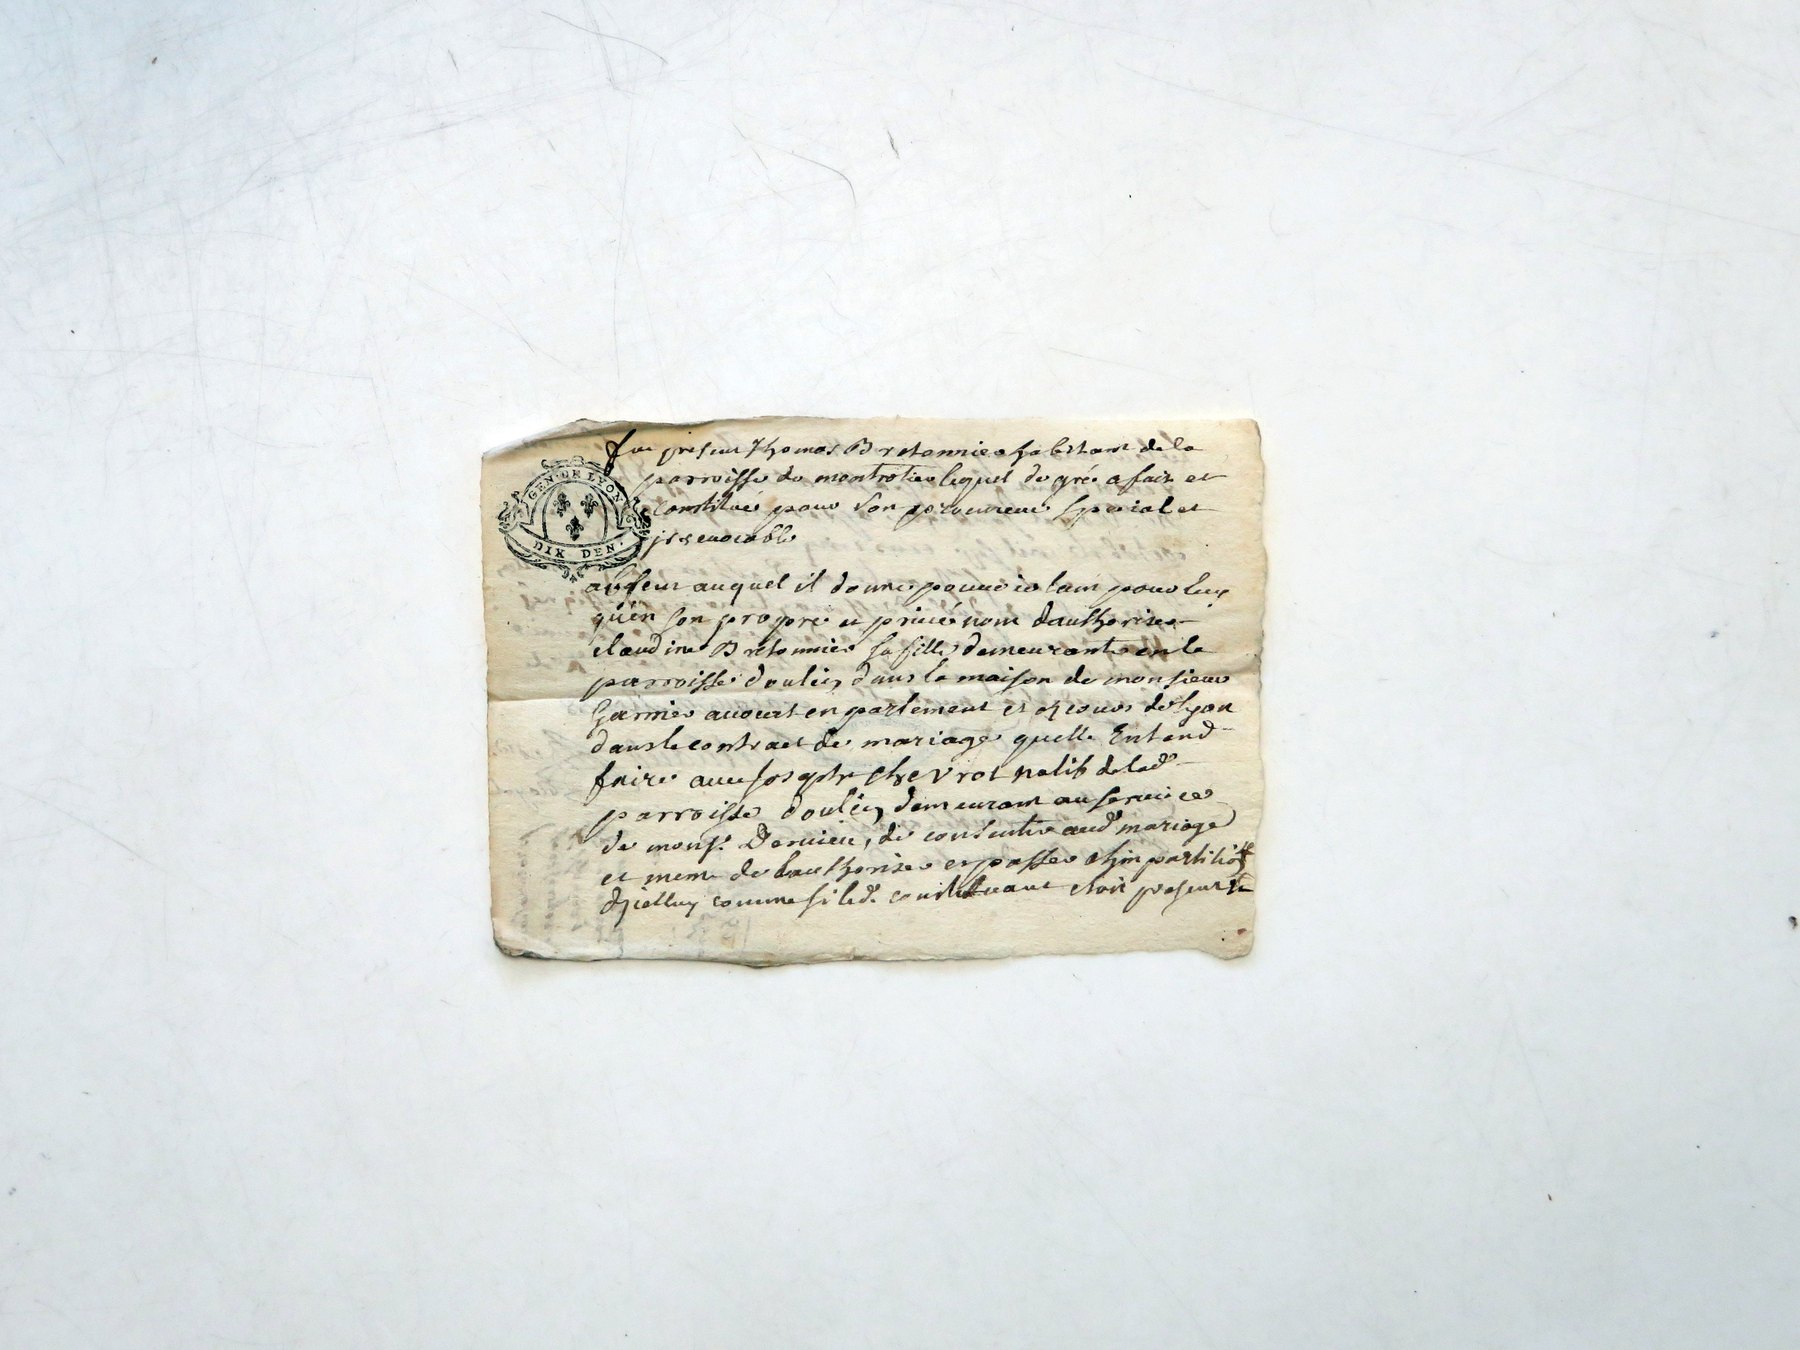 GEN. DE LYON
DIX DEN.
fut present Thomas Bretonnier habitant de la
parroisse de montrotier lequel de gré a fait et
constitué pour son procureur special et
irrevocable
absent auquel il donne pouvoir tant pour luy
qu'en son propre et privé nom dauthoriser
claudine Bretonnier sa fille demeurante en la
parroisse doulin dans la maison de monsieur
Garnier avocat en parlement et cours de lyon
dans le contract de mariage quelle Entend
faire avec Joseph chevrot natif de lad
parroisse doulin demeurant au service
de mons. de consentir aud mariage
et meme de lauthoriser et passer
dicelluy comme si led. constituant etoit present